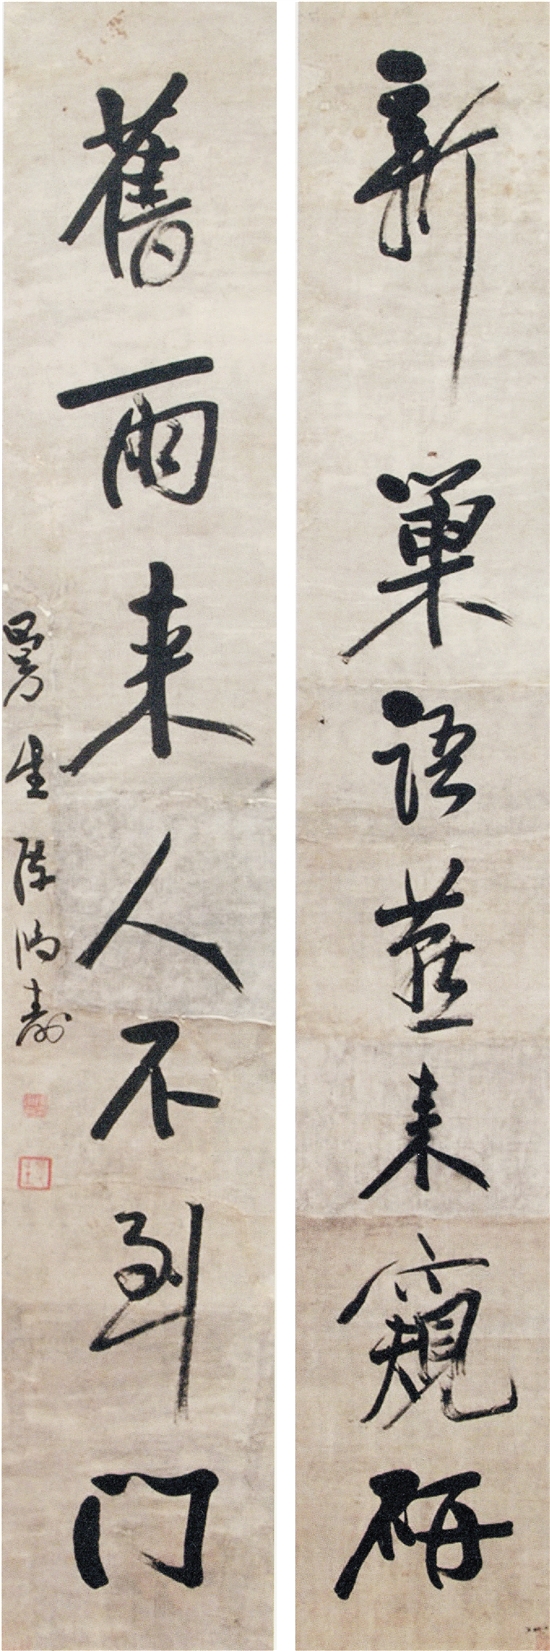 新巢語燕来窺研
舊雨来人不到门
曼生陳鴻壽